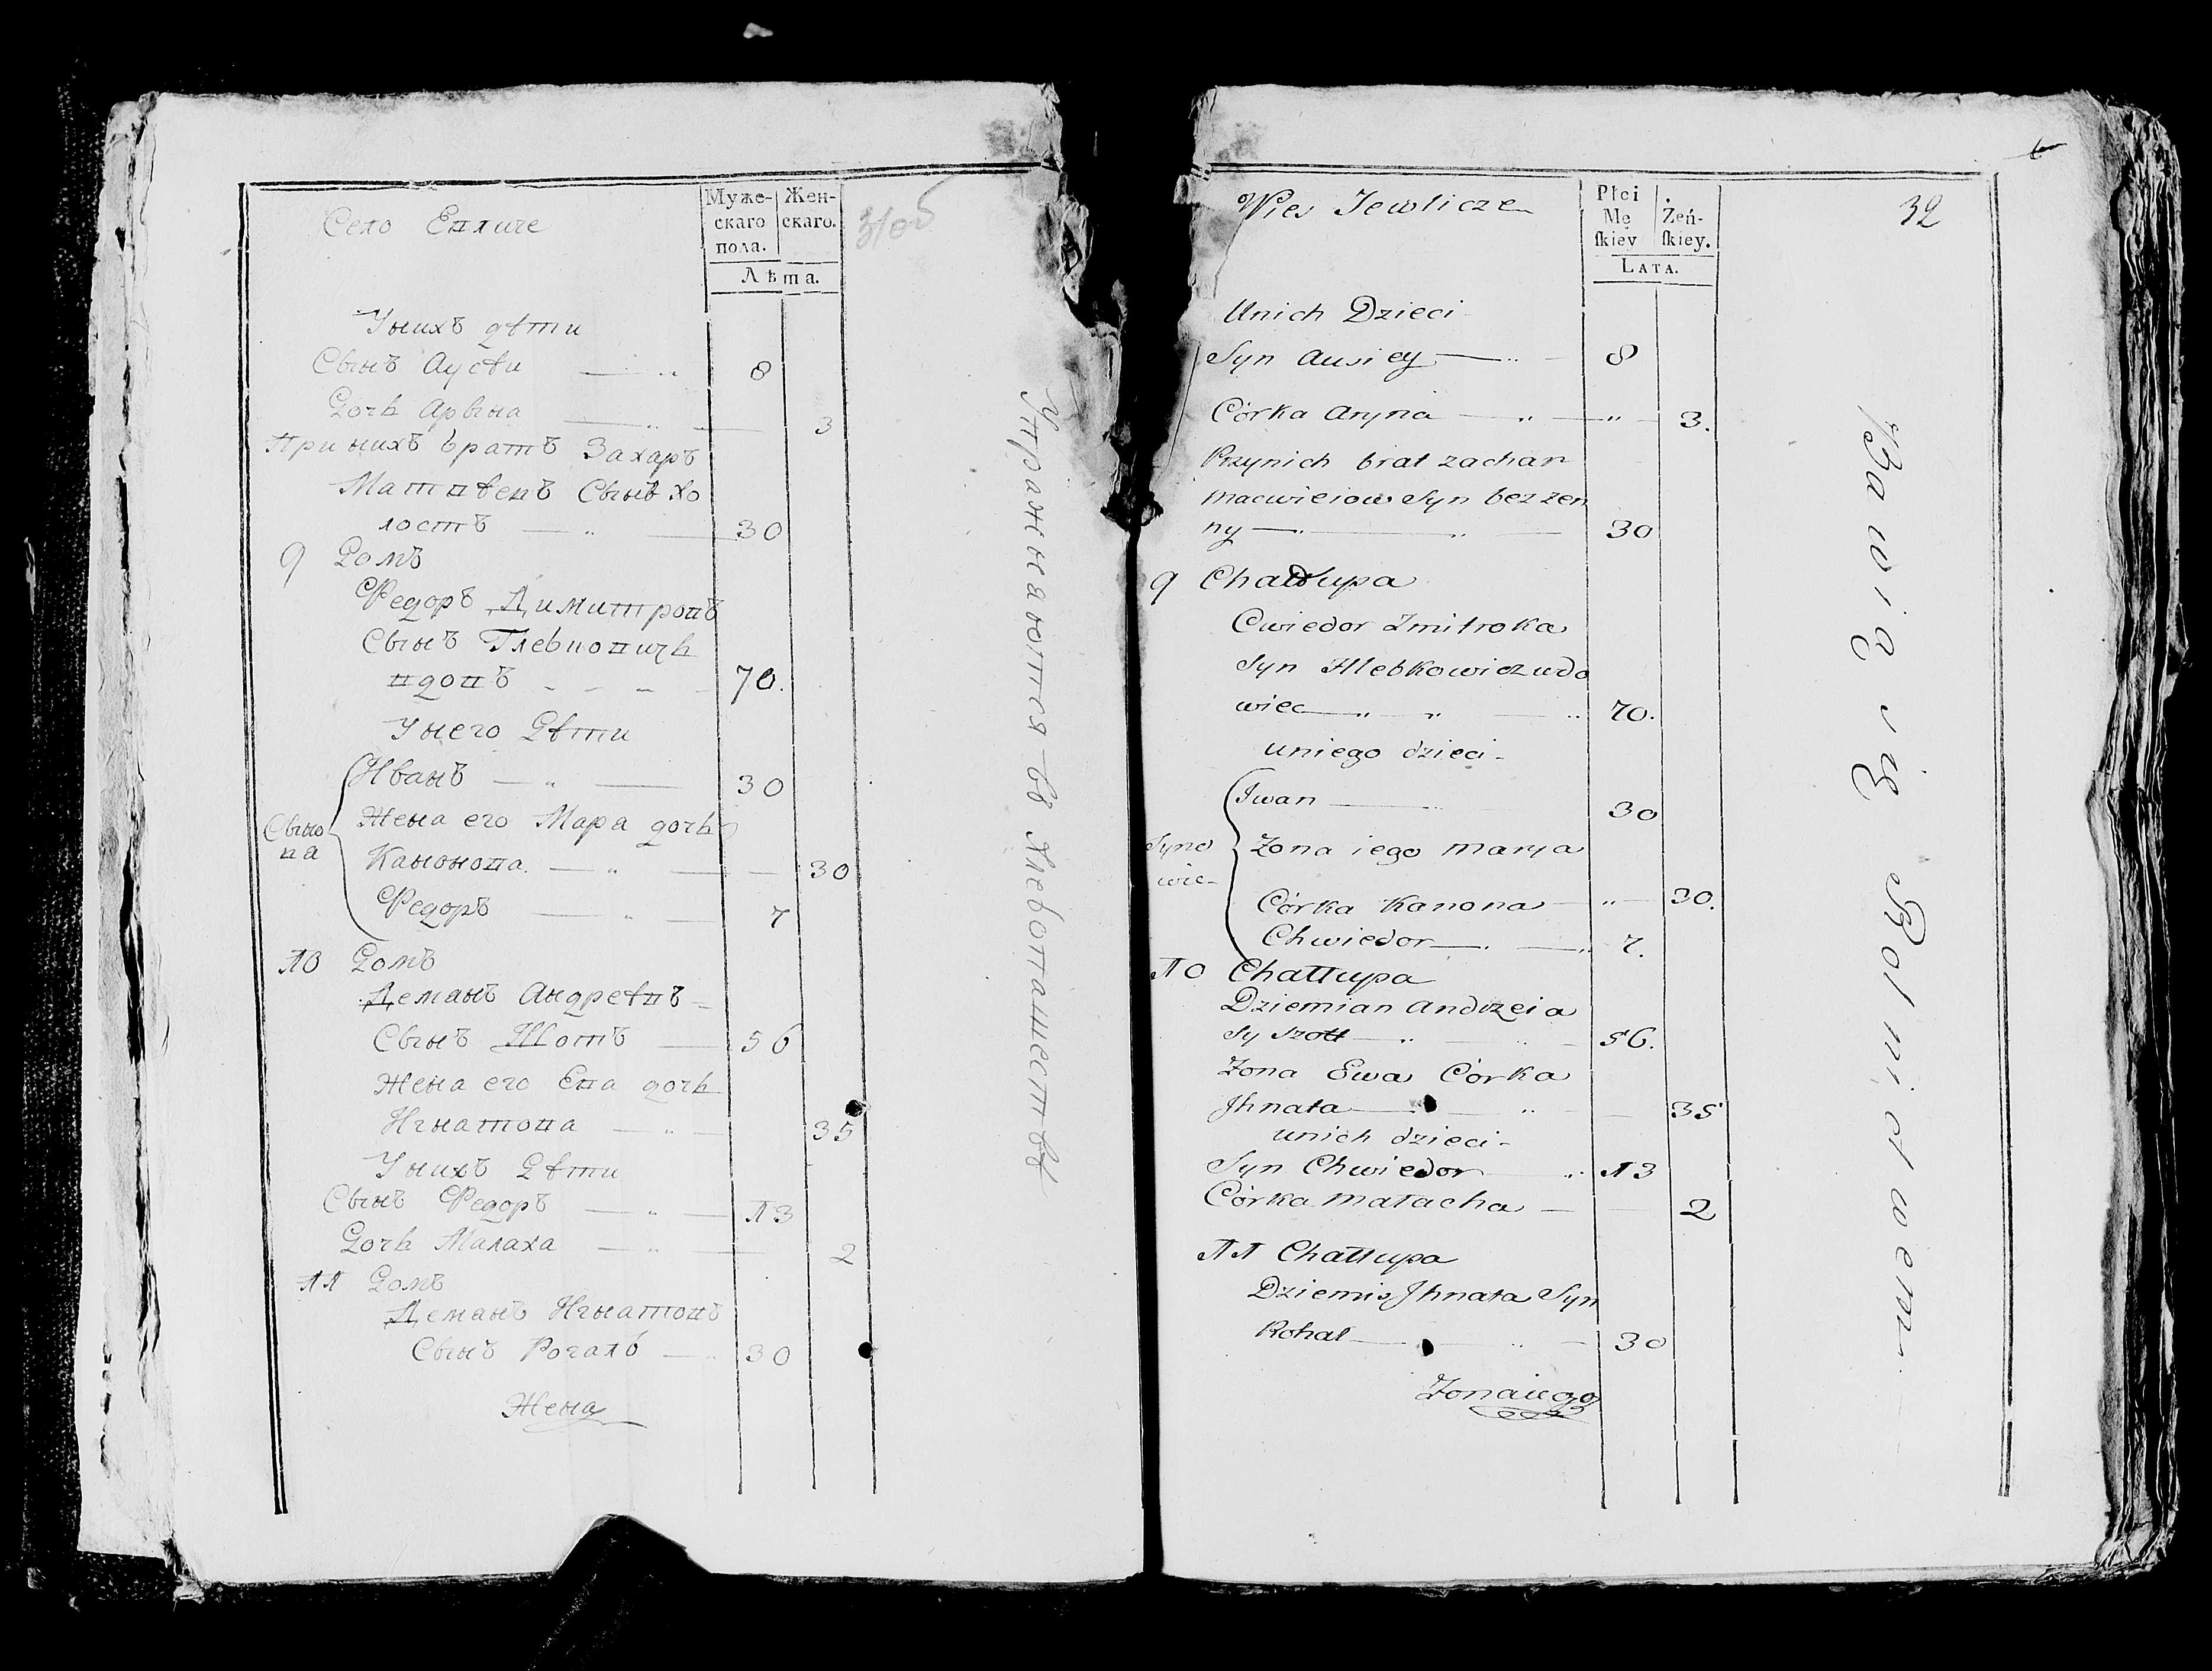 Село Евличе
Муже-
скаго
пола.
Жен-
скаго.
Лѣта.
31об
Унихъ дѣти
Сынъ Аусѣи 8
Дочь Арына 3
Принихъ братъ Захаръ
Матвѣевъ Сынъ хо
лостъ 30
9 Домъ
Федоръ Димитровъ
Сынъ Глебковичь
вдовъ 70.
Унего Дѣти
Сыно
ва
Иванъ 30
Жена его Мара дочь
Канонова. 30
Федоръ 7
10 Домъ
Деманъ Андреѣвъ
Сынъ Шотъ 56
Жена его Ева дочь
Игнатова 35
Унихъ Дѣти
Сынъ Федоръ 13
Дочь Малаха 2
11 Домъ
Деманъ Игнатовъ
Сынъ Рогалъ 30
Жена
Упражняются въ Хлебопашествѣ
Wies Jewlicze
Płci
Mę
skiey
Żeń-
skiey.
LATA.
32
Unich Dzieci
Syn Ausiey 8
Córka Aryna 3.
Przynich brat zachar
Macwieiow Syn bez zen
ny 30
9 Chałłupa
Cwiedor Zmitroka
Syn Hlebkowicz wdo
wiec 70.
uniego dzieci
Syno
wie
Iwan 30
Zona iego Marya
Córka Kanona 30.
Chwiedor 7.
10 Chałłupa
Dziemian Andrzeia
Sy Szott 56.
Zona Ewa Córka
Jhnata 35
unich dzieci
Syn Chwiedor 13
Córka Małacha 2
11 Chałłupa
Dziemis Jhnata Syn
Rohal 30
Zona iego
Bawią się Rolnictwem